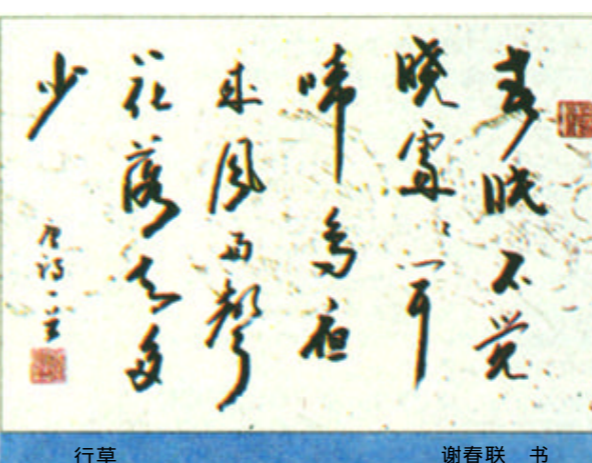 春眠不觉
晓處々闻
啼鸟夜
来风雨聲
花落知多
少
唐诗一首
行草
谢春联 书